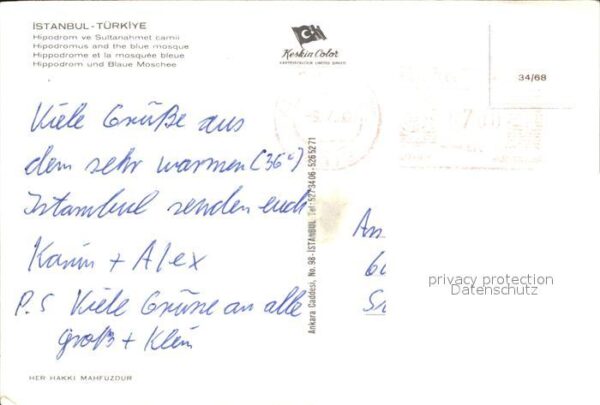 İSTANBUL-TÜRKİYE
Hipodrom ve Sultanahmet camii
Hipodromus and the blue mosque
Hippodrome et la mosquée bleue
Hippodrom und Blaue Moschee
Keskin Color
34/68
Viele Grüße aus
dem sehr warmen (36°)
Istambul senden euch
Karin + Alex
P.S Viele Grüsse an alle
groß + Klein
HER HAKKI MAHFUZDUR
Ankara Caddesi, No. 98-İSTANBUL Tel: 5273406-5265271
privacy protection
Datenschutz